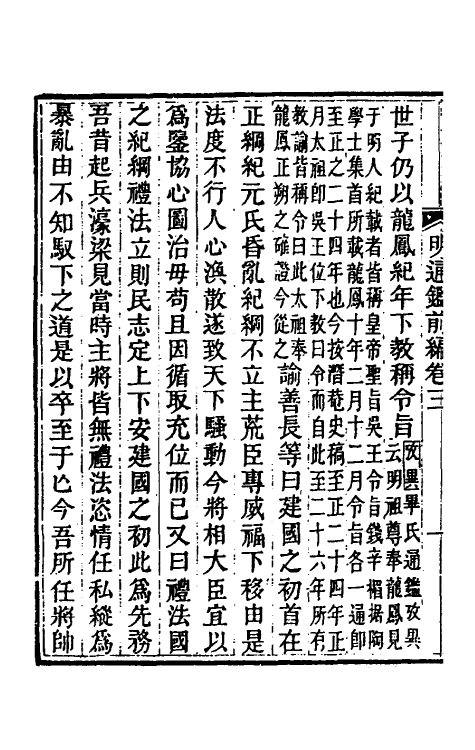 明通鑑前編卷三
一
世子仍以龍鳳紀年下教稱令旨攷異畢氏通鑑攷異
云明祖尊奉龍鳳見
于明人紀載者皆稱皇帝聖旨吳王令旨錢辛楣据陶
學士集首所載龍鳳十年二月十二月令旨各一通卽
至正之二十四年也今按潛菴史稿至正二十四年正
月太祖卽吳王位下教曰令而自此至二十六年所有
教諭皆稱令曰此太祖奉
龍鳳正朔之確證今從之諭善長等曰建國之初首在
正綱紀元氏昏亂紀綱不立主荒臣專威福下移由是
法度不行人心渙散遂致天下騷動今將相大臣宜以
爲鑒協心圖治毋苟且因循取充位而已又曰禮法國
之紀綱禮法立則民志定上下安建國之初此爲先務
吾昔起兵濠梁見當時主將皆無禮法恣情任私縱爲
暴亂由不知馭下之道是以卒至于亾今吾所任將帥